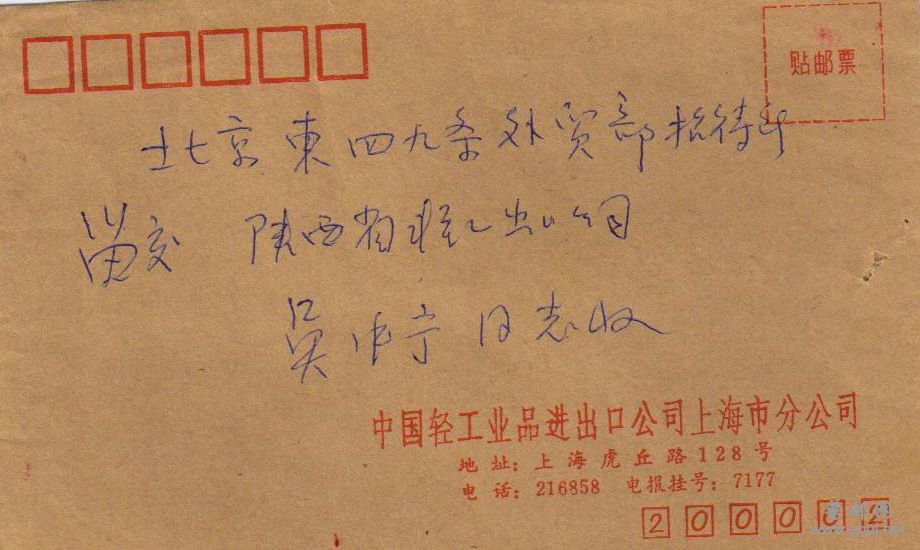 贴邮票
北京東四九条外贸部招待所
留交 陕西省轻工出口公司
吴中宁同志收
中国轻工业品进出口公司上海市分公司
地址：上海虎丘路128号
电话：216858 电报挂号：7177
200002